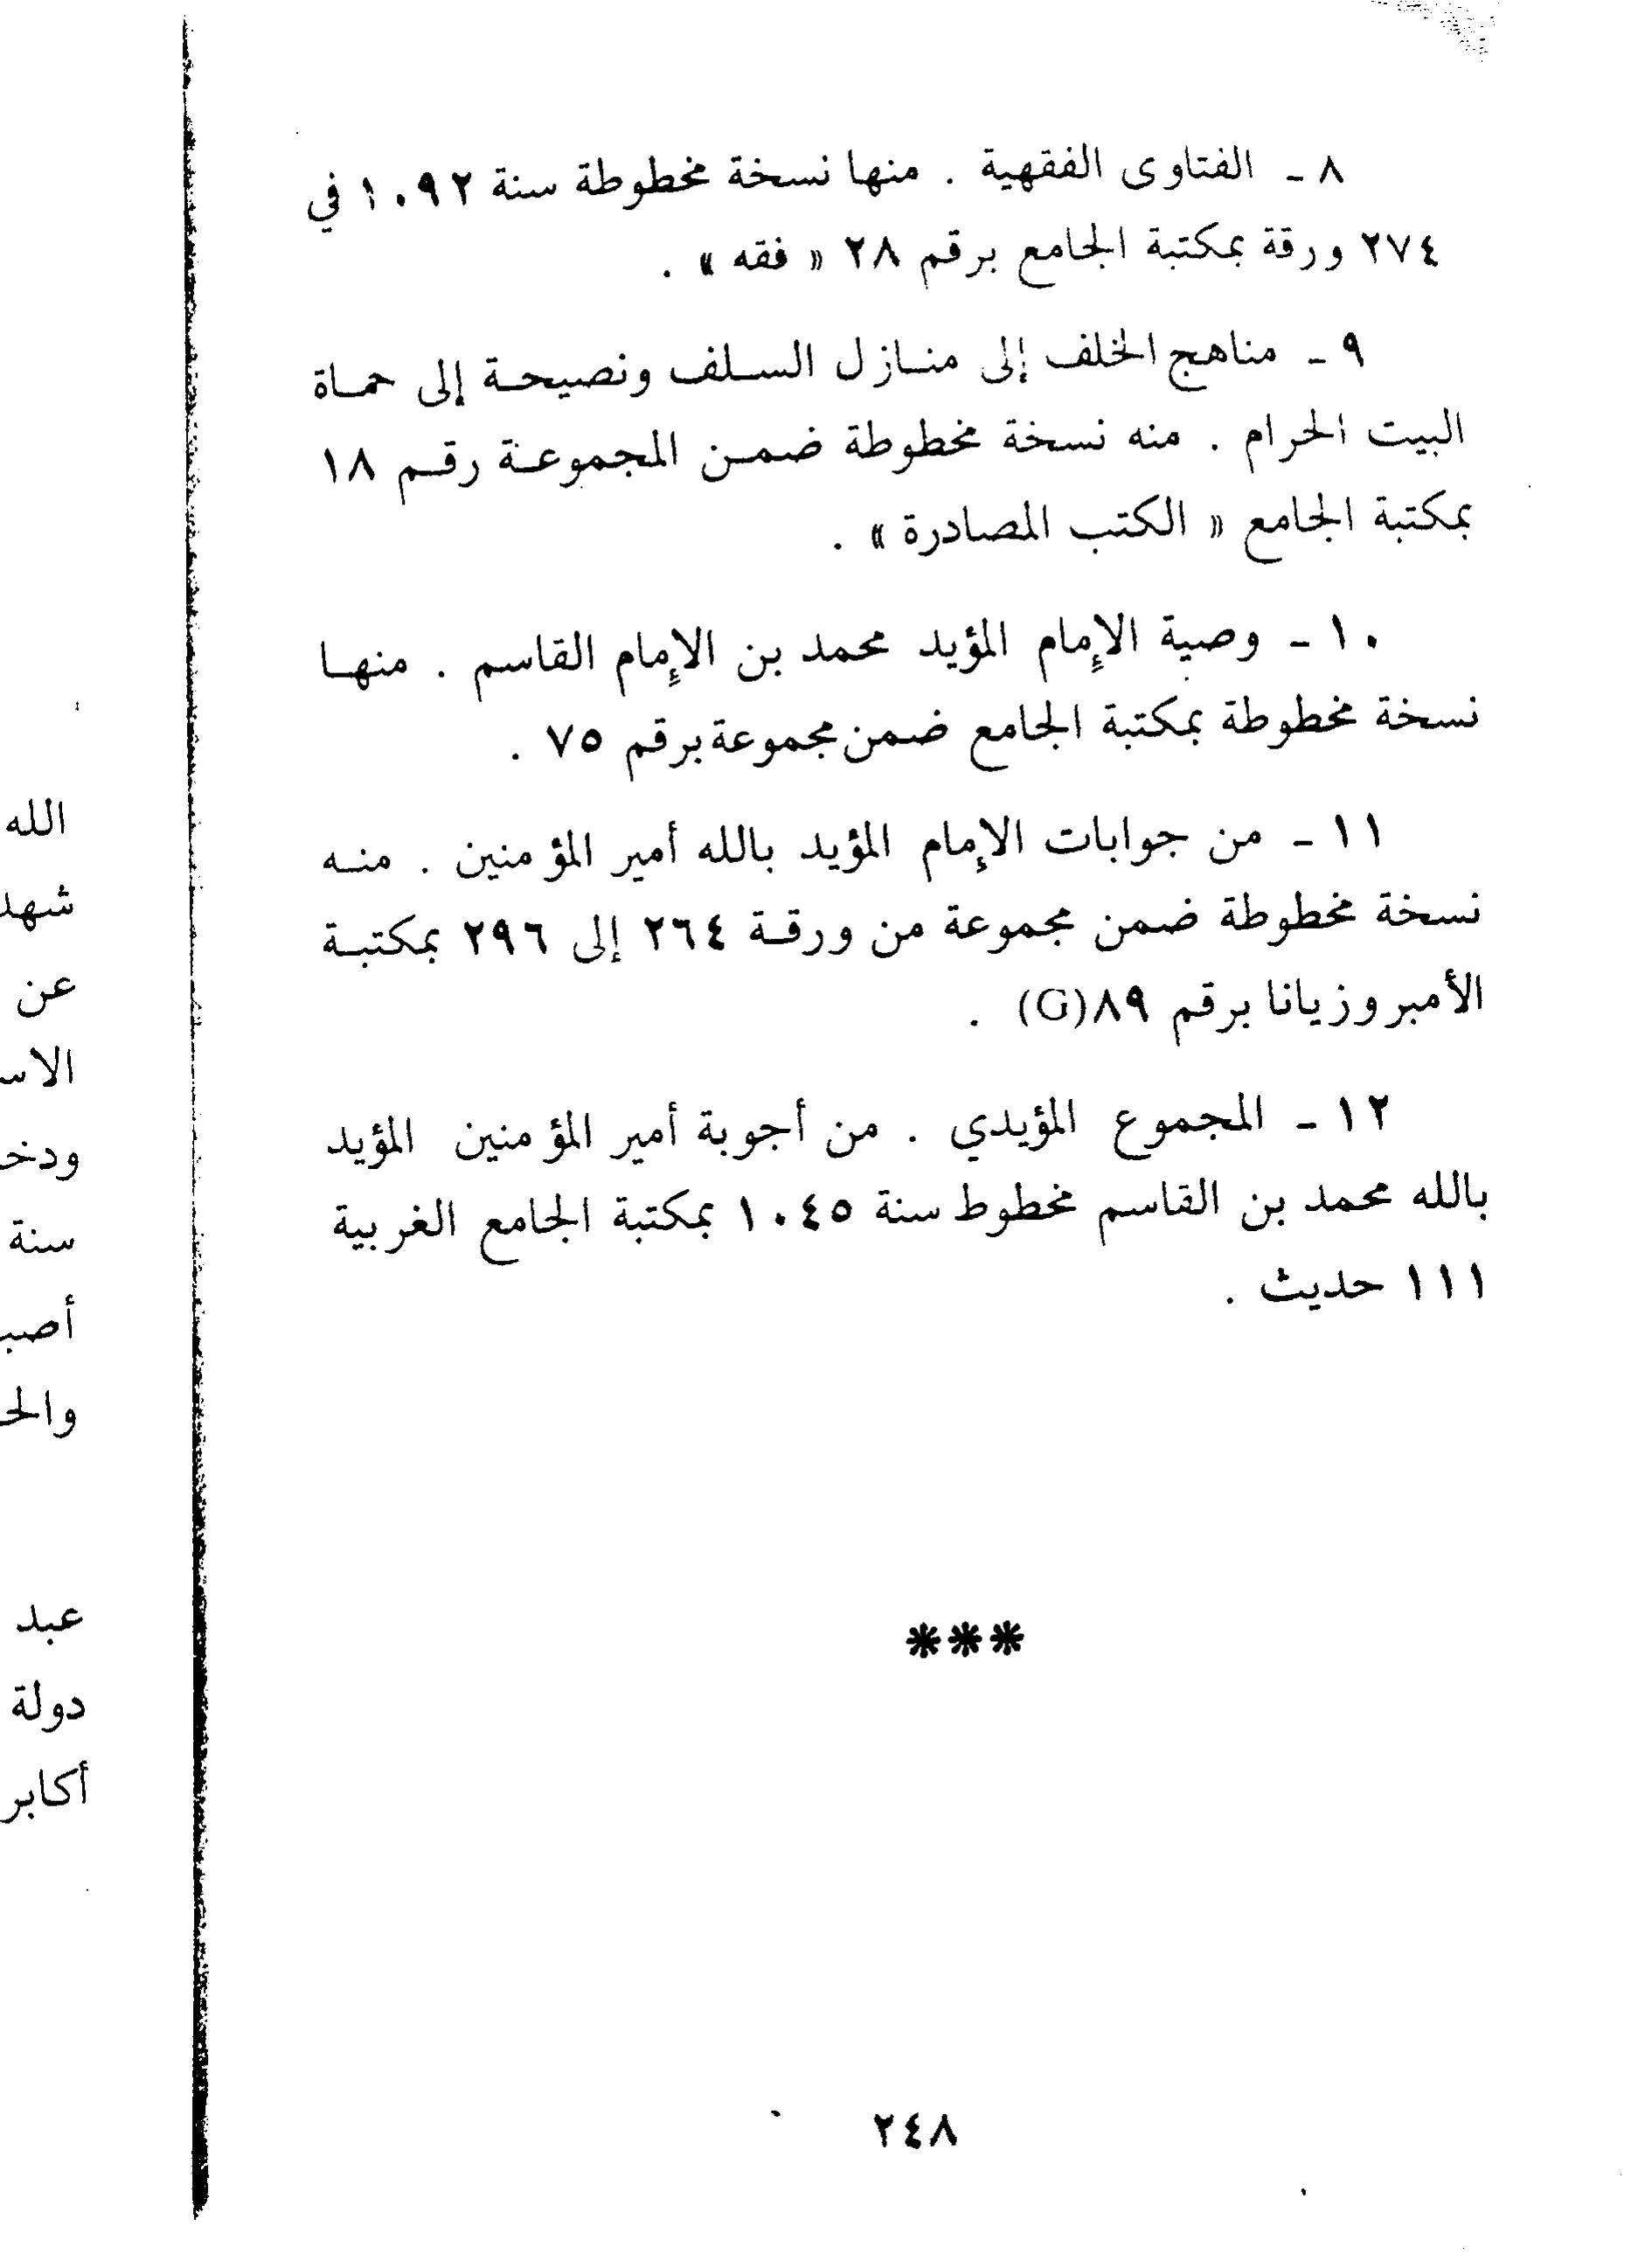 ٨ ـ الفتاوى الفقهية . منها نسخة مخطوطة سنة ١٠٩٢ في
٢٧٤ ورقة بمكتبة الجامع برقم ٢٨ « فقه » .
٩ ـ مناهج الخلف إلى منازل السلف ونصيحة إلى حماة
البيت الحرام . منه نسخة مخطوطة ضمن المجموعة رقم ١٨
بمكتبة الجامع « الكتب المصادرة » .
١٠ ـ وصية الإمام المؤيد محمد بن الإمام القاسم . منها
نسخة مخطوطة بمكتبة الجامع ضمن مجموعة برقم ٧٥ .
١١ ـ من جوابات الإمام المؤيد بالله أمير المؤمنين . منه
نسخة مخطوطة ضمن مجموعة من ورقة ٢٦٤ إلى ٢٩٦ بمكتبة
الأمبروزيانا برقم ٨٩(G) .
١٢ ـ المجموع المؤيدي . من أجوبة أمير المؤمنين المؤيد
بالله محمد بن القاسم مخطوط سنة ١٠٤٥ بمكتبة الجامع الغربية
١١١ حديث .
***
٢٤٨
الله
عن
سنة
عبد
دولة
أكابر